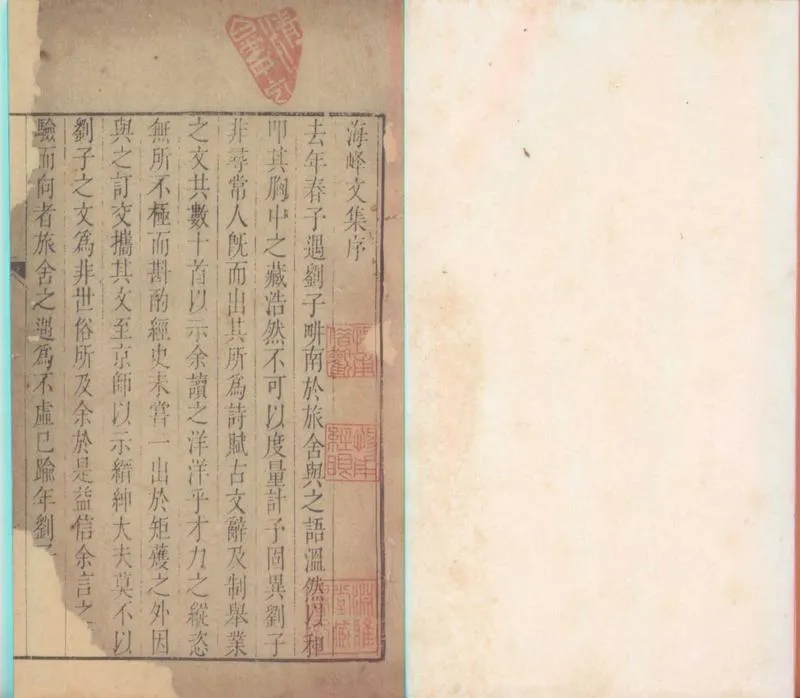 海峰文集序
去年春予遇劉子畊南於旅舍與之語溫然以和
叩其胸中之藏浩然不可以度量計予固異劉子
非尋常人旣而出其所爲詩賦古文辭及制舉業
之文共數十首以示余讀之洋洋乎才力之縱恣
無所不極而斟酌經史未嘗一出於矩矱之外因
與之訂交攜其文至京師以示縉紳大夫莫不以
劉子之文爲非世俗所及余於是益信余言之
驗而向者旅舍之遇爲不虛已踰年劉子